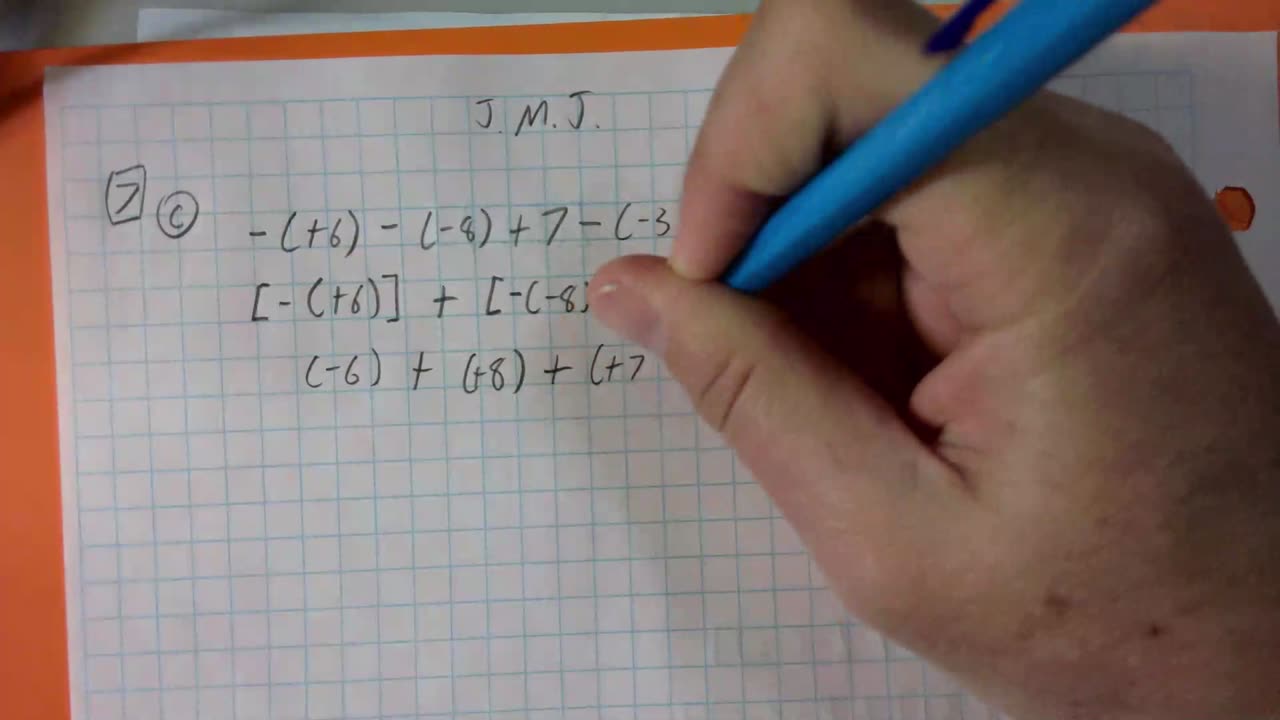 J.M.J.
7 c -(+6) - (-8) + 7 - (-3
[-(+6)] + [-(-8)
(-6) + (+8) + (+7